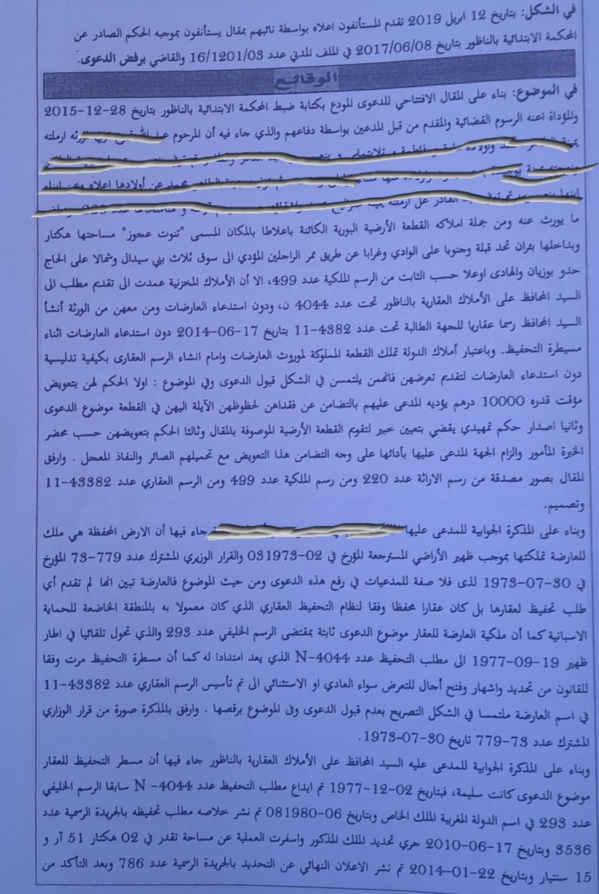 في الشكل: بتاريخ 12 ابريل 2019 تقدم المستأنفون اعلاه بواسطة نائبهم بمقال يستأنفون بموجبه الحكم الصادر عن
المحكمة الابتدائية بالناظور بتاريخ 2017/06/08 في الملف المدني عدد 16/1201/03 والقاضي برفض الدعوى.
الوقائع
في الموضوع: بناء على المقال الافتتاحي للدعوى المودع بكتابة ضبط المحكمة الابتدائية بالناظور بتاريخ 28-12-2015
والمؤداة اعنه الرسوم القضائية والمقدم من قبل المدعين بواسطة دفاعهم والذي جاء فيه أن المرحوم ورثه ارملته
عن أولادها اعلاه وعن ابنام
ما يورث عنه ومن جملة املاكه القطعة الأرضية البورية الكائنة باعلاطا بالمكان المسمى "تنوت عجوز" مساحتها هكتار
وبداخلها بئران تحد قبلة وجنوبا على الوادي وغرابا عن طريق ممر الراحلين المؤدي الى سوق ثلاث بني سيدال وشمالا على الحاج
حدو بوزيان والهادى اوعلا حسب الثابت من الرسم الملكية عدد 499، الا أن الأملاك المخزنية عمدت الى تقديم مطلب الى
السيد المحافظ على الأملاك العقارية بالناظور تحت عدد 4044 ن، ودون استدعاء العارضات ومن معهن من الورثة أنشأ
السيد المحافظ رسما عقاريا للجهة الطالبة تحت عدد 4382-11 بتاريخ 17-06-2014 دون استدعاء العارضات اثناء
مسيطرة التحفيظ. وباعتبار أملاك الدولة تملك القطعة المملوكة لموروث العارضات وامام انشاء الرسم العقارى بكيفية تدليسية
دون استدعاء العارضات لتقديم تعرضهن فانهمن يلتمسن في الشكل قبول الدعوى وفي الموضوع : اولا الحكم لهن بتعويض
مؤقت قدره 10000 درهم يؤديه المدعى عليهم بالتضامن عن فقداهن لحظوظهن الآيلة اليهن في القطعة موضوع الدعوى
وثانيا اصدار حكم تمهيدي يقضي بتعيين خبير لتقويم القطعة الأرضية الموصوفة بالمقال وثالثا الحكم بتعويضهن حسب محضر
الخبرة المأمور والزام الجهة المدعى عليها بأدائها على وجه التضامن هذا التعويض مع تحميلهم الصائر والنفاذ المعجل . وارفق
المقال بصور مصدقة من رسم الاراثة عدد 220 ومن رسم الملكية عدد 499 ومن الرسم العقاري عدد 43382-11
وتصميم.
وبناء على المذكرة الجوابية للمدعى عليها جاء فيها أن الارض المحفظة هي ملك
للعارضة تملكتها بموجب ظهير الأراضي المسترجعة المؤرخ في 02-031973 والقرار الوزيري المشترك عدد 779-73 المؤرخ
في 30-07-1973 لذى فلا صفة للمدعيات في رفع هذه الدعوى ومن حيث الموضوع فالعارضة تبين انها لم تقدم أي
طلب تحفيظ لعقارها بل كان عقارا محفظا وفقا لنظام التحفيظ العقاري الذي كان معمولا به بالمنطقة الخاضعة للحماية
الاسبانية كما أن ملكية العارضة للعقار موضوع الدعوى ثابتة بمقتضى الرسم الخليفي عدد 293 والذي تحول تلقائيا في اطار
ظهير 19-09-1977 الى مطلب التحفيظ عدد N-4044 الذي يعد امتدادا له كما أن مسطرة التحفيظ مرت وفقا
للقانون من تحديد واشهار وفتح أجال للتعرض سواء العادي او الاستثنائي الى تم تأسيس الرسم العقاري عدد 43382-11
في اسم العارضة ملتمسا في الشكل التصريح بعدم قبول الدعوى وفى الموضوع برقصها . وارفق بالمذكرة صورة من قرار الوزاري
المشترك عدد 73-779 تاريخ 30-07-1973.
وبناء على المذكرة الجوابية للمدعى عليه السيد المحافظ على الأملاك العقارية بالناظور جاء فيها أن مسطر التحفيظ للعقار
موضوع الدعوى كانت سليمة، فبتاريخ 02-12-1977 تم ايداع مطلب التحفيظ عدد N -4044 سابقا الرسم الخليفي
عدد 293 في اسم الدولة المغربية الملك الخاص وبتاريخ 06-081980 تم نشر خلاصه مطلب تحفيظه بالجريدة الرسمية عدد
3536 وبتاريخ 17-06-2010 جرى تحديد الملك المذكور واسفرت العملية عن مساحة تقدر في 02 هكتار 51 آر و
15 سنتيار وبتاريخ 22-01-2014 تم نشر الاعلان النهائي عن التحديد بالجريدة الرسمية عدد 786 وبعد التأكد من